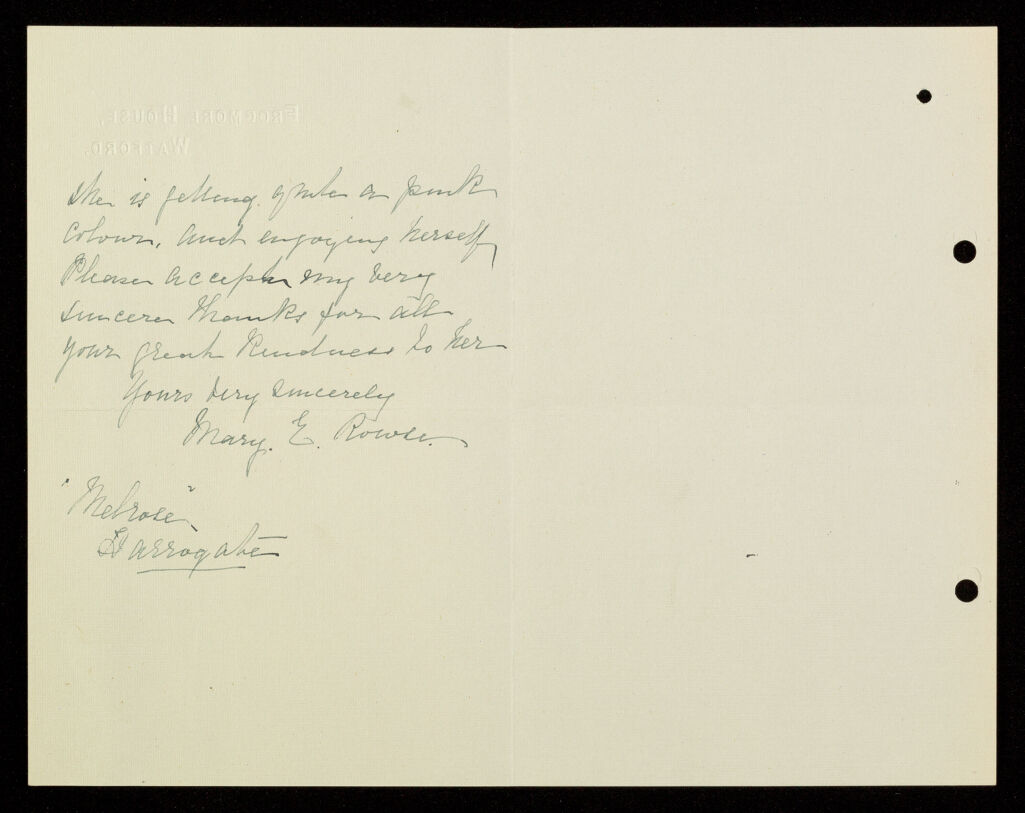 FROGMORE HOUSE,
WATFORD.
She is getting quite a pink
colour, and enjoying herself,
Please accept my very
sincere thanks for all
your great kindness to her
Yours very sincerely
Mary. E. Rowse.
"Melrose"
Harrogate